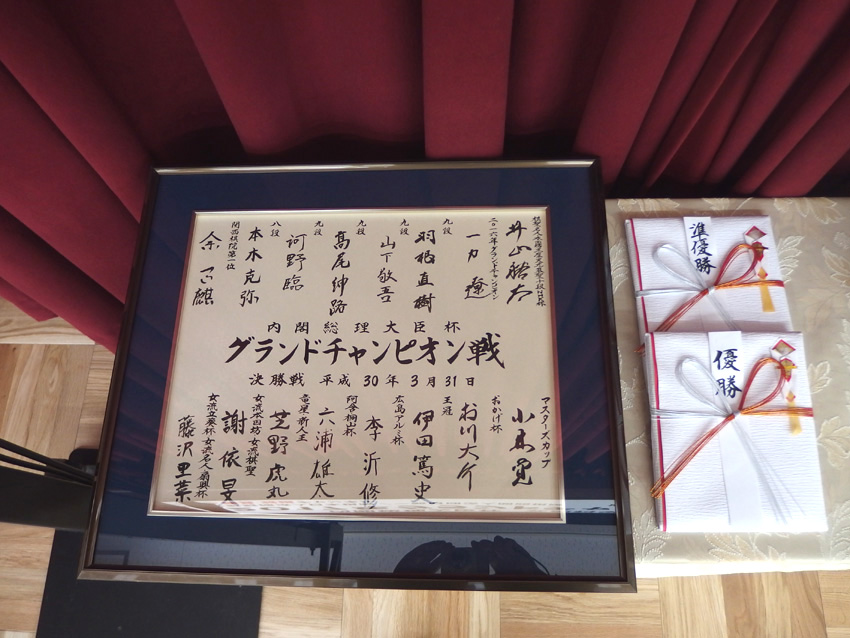 井山裕太
二〇一六年グランドチャンピオン
一力遼
九段
羽根直樹
九段
山下敬吾
九段
高尾紳路
九段
河野臨
八段
本木克弥
関西棋院第一位
余正麒
内閣総理大臣杯
グランドチャンピオン戦
決勝戦 平成30年3月31日
マスターズカップ
小林覚
おかげ杯
王冠
伊田篤史
広島アルミ杯
李沂修
阿含桐山杯
六浦雄太
竜星新人王
芝野虎丸
女流本因坊 女流棋聖
謝依旻
女流立葵杯 女流名人 扇興杯
藤沢里菜
準優勝
優勝